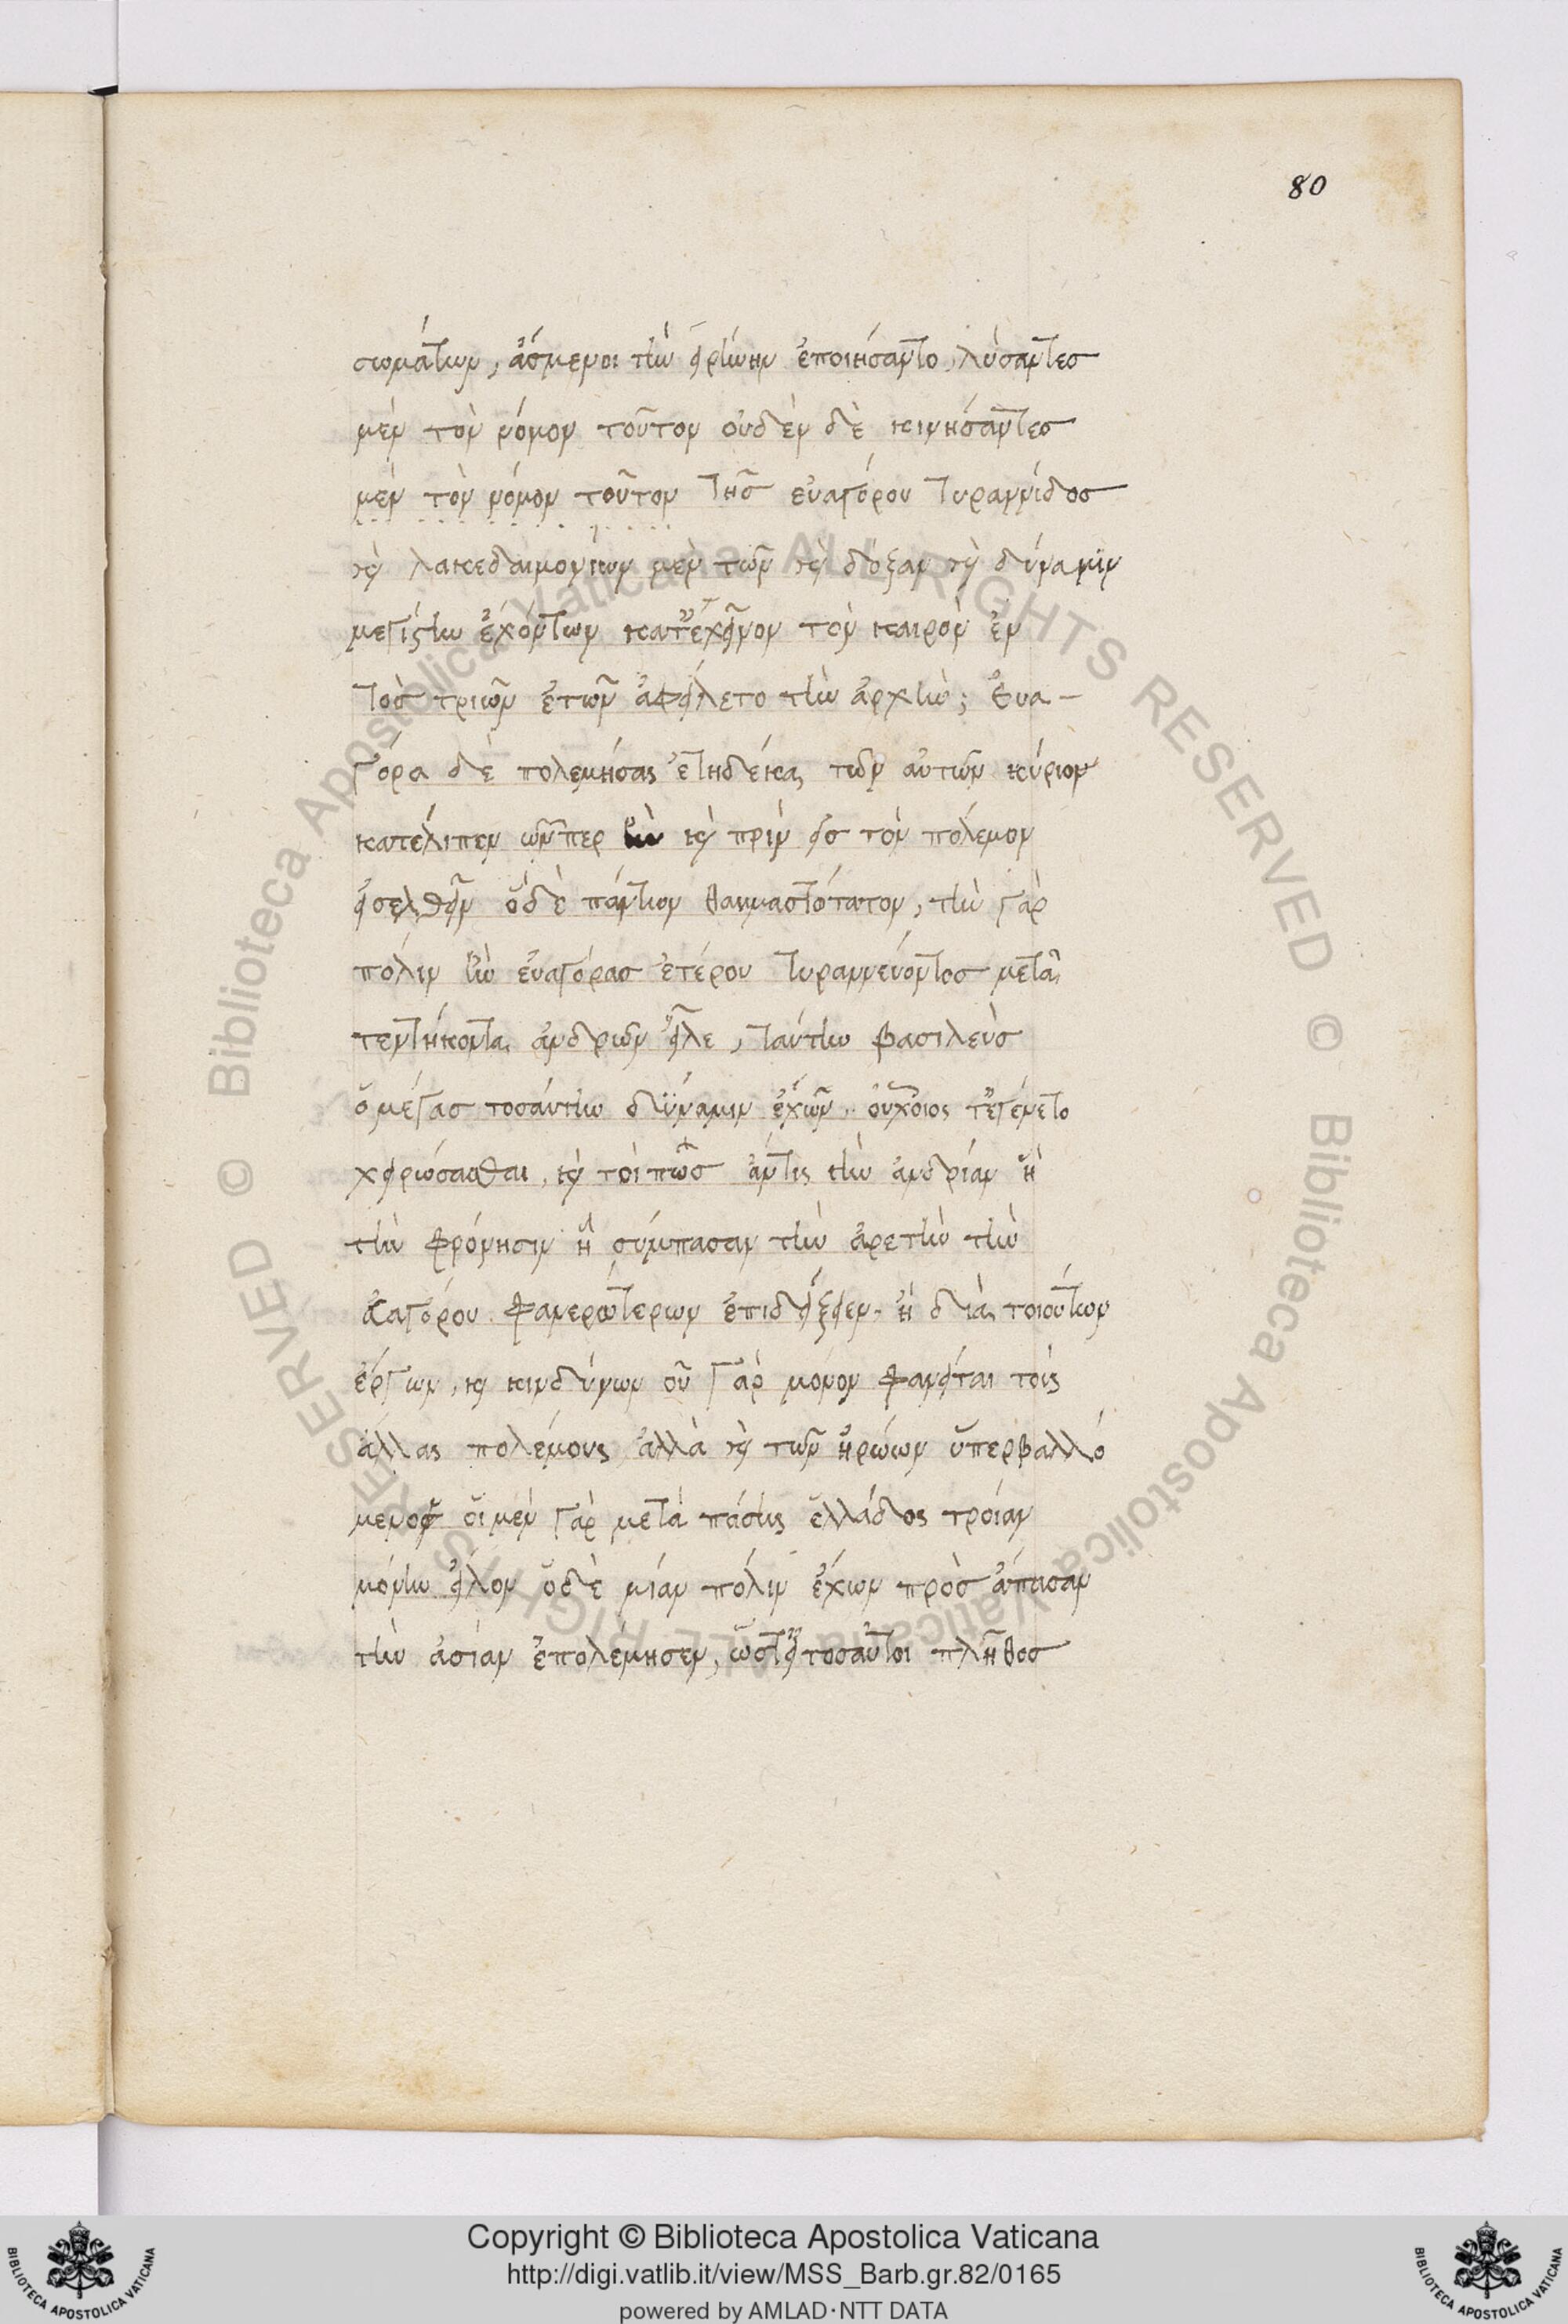 80
σωμάτων, ἄσμενοι τὴν εἰρήνην ἐποιήσαντο, λύσαντες
μὲν τὸν νόμον τοῦτον οὐδὲν δὲ κινήσαντες
μὲν τὸν νόμον τοῦτον τῆς εὐαγόρου τυραννίδος
κὶ λακεδαιμονίων μὲν τῶν κὶ δόξαν κὶ δύναμιν
μεγίστην ἐχόντων κατ' ἐχεῖνον τὸν καιρὸν ἐν
τὸς τριῶν ἐτῶν ἀφείλετο τὴν ἀρχὴν; Εὐα-
γόρα δὲ πολεμήσας ἔτηδέκα, τῶν αὐτῶν κύριον
κατέλιπεν ὧνπερ ἦν κὶ πρὶν εἰς τὸν πόλεμον
εἰσελθεῖν ὅδὲ πάντων θαυμαστότατον, τὴν γὰρ
πόλιν ἣν εὐαγόρας ἑτέρου τυραννεύοντος μετὰ
τεντήκοντα ἀνδρῶν εἷλε, ταύτην βασιλεὺς
ὁ μέγας τοσάυτην δύναμιν ἔχων, οὐχ οἷος τ' ἐγένετο
χειρώσασθαι, κὶ τοὶ πῶς ἄντις τὴν ἀνδρίαν ἢ
τὴν φρόνησιν ἢ σύμπασαν τὴν ἀρετὴν τὴν
ἐαγόρου φανερώτερων ἐπιδείξειεν. ἢ διὰ τοιούτων
ἔργων, κὶ κινδύνων οὐ γὰρ μόνον φανεῖται τοὶς
ἄλλας πολέμους ἀλλὰ κὶ τῶν ἡρώων ὑπερβαλλό
μενος οἱ μὲν γὰρ μετὰ πάσης ἑλλάδος τροίαν
μόνην εἷλον ὁδὲ μίαν πόλιν ἔχων πρὸς ἅπασαν
τὴν ἀσίαν ἐπολέμησεν, ὥστ' εἰ τοσαῦτοι πλῆθος
© Biblioteca Apostolica Vaticana ALL RIGHTS RESERVED
© Biblioteca Apostolica Vaticana ALL RIGHTS RESERVED
Copyright © Biblioteca Apostolica Vaticana
http://digi.vatlib.it/view/MSS_Barb.gr.82/0165
powered by AMLAD·NTT DATA
BIBLIOTECA APOSTOLICA VATICANA
BIBLIOTECA APOSTOLICA VATICANA